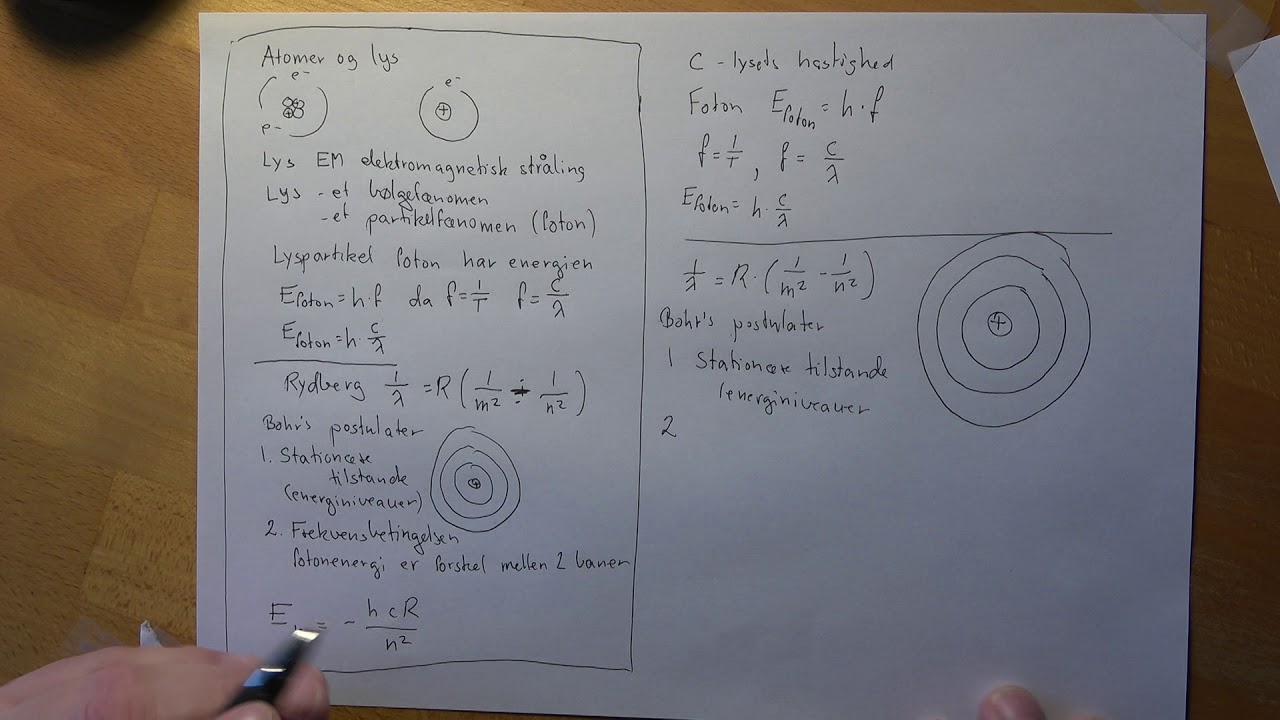 Atomer og lys
e-
e-
e-
+
Lys EM elektromagnetisk stråling
Lys - et bølgefænomen
- et partikelfænomen (foton)
Lyspartikel foton har energien
Efoton = h·f da f = 1/T f = c/λ
Efoton = h · c/λ
Rydberg 1/λ = R (1/m² ÷ 1/n²)
Bohr's postulater
1. Stationære
tilstande
(energiniveauer)
+
2. Frekvensbetingelsen
fotonenergi er forskel mellen 2 baner
E = - hcR/n²
C - lysets hastighed
Foton Efoton = h·f
f = 1/T , f = c/λ
Efoton = h · c/λ
1/λ = R · (1/m² - 1/n²)
+
Bohr's postulater
1 Stationære tilstande
(energiniveauer
2